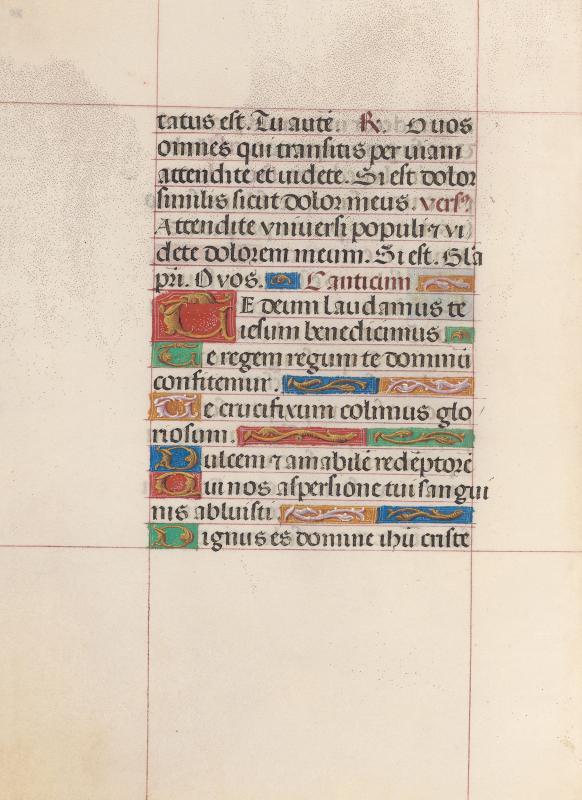 tatus est. Tu autē R. O uos
omnes qui transitis per uiam
attendite et uidete. Si est dolor
similis sicut dolor meus. vers9
Attendite vniuersi populi ⁊ vi
dete dolorem meum. Si est. Gla
pri. O vos. Canticum
TE deum laudamus te
iesum benedicimus
Te regem regum te dominū
confitemur.
Te crucifixum colimus glo
riosum.
Dulcem ⁊ amabilē redēptorē
Qui nos aspersione tui sangui
nis abluisti
Dignus es domine ihū criste